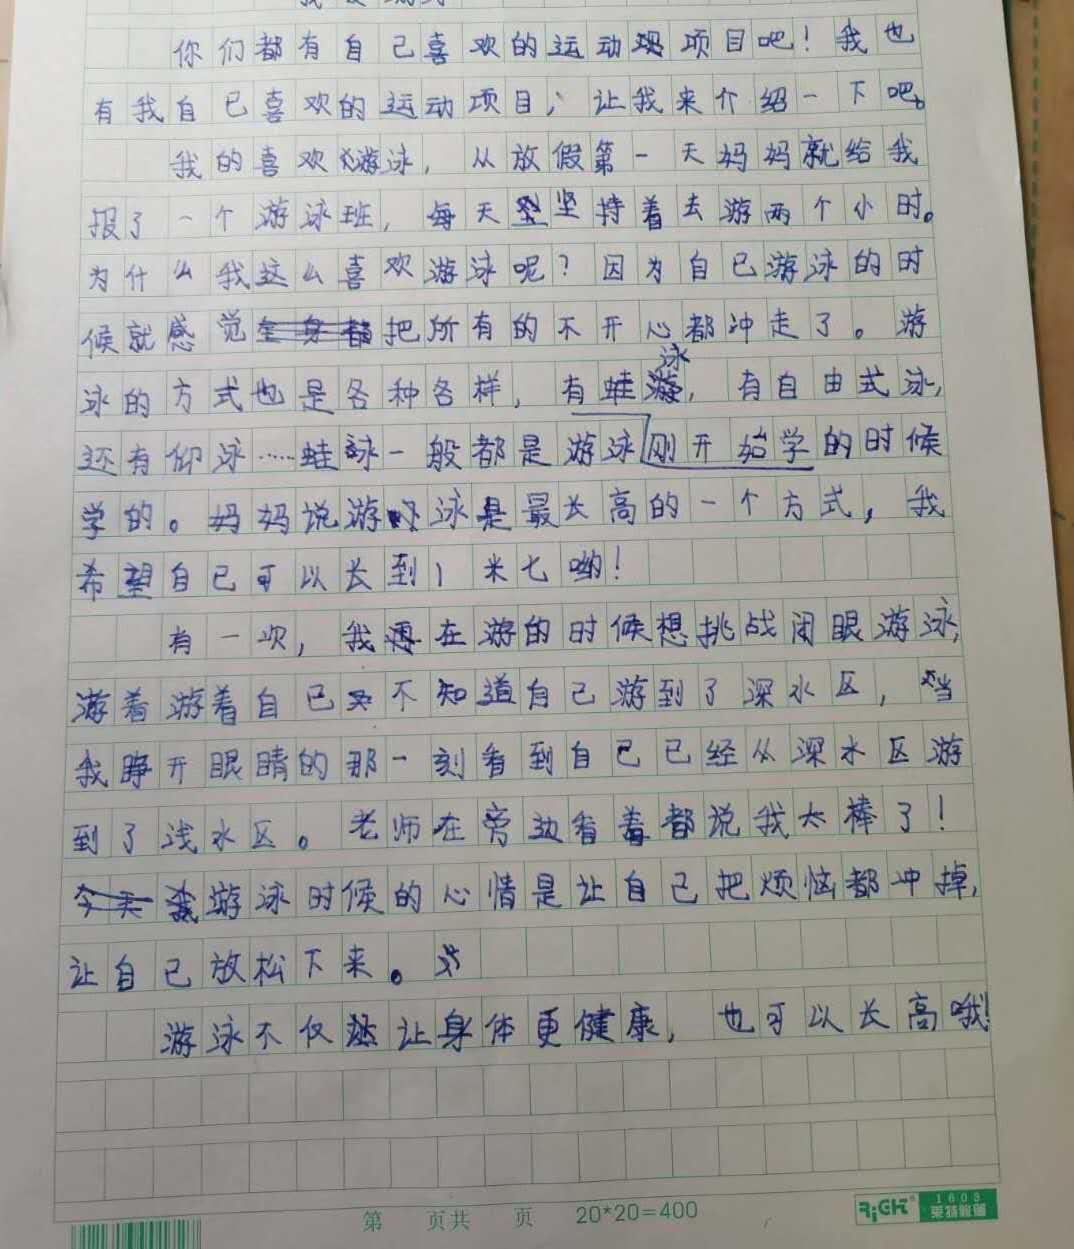 你们都有自己喜欢的运动项目吧！我也
有我自己喜欢的运动项目，让我来介绍一下吧。
我的喜欢游泳，从放假第一天妈妈就给我
报了一个游泳班，每天坚持着去游两个小时。
为什么我这么喜欢游泳呢？因为自己游泳的时
候就感觉把所有的不开心都冲走了。游
泳的方式也是各种各样，有蛙泳，有自由式泳，
还有仰泳……蛙泳一般都是游泳刚开始学的时候
学的。妈妈说游泳是最长高的一个方式，我
希望自己可以长到1米七哟！
有一次，我在游的时候想挑战闭眼游泳，
游着游着自己不知道自己游到了深水区，当
我睁开眼睛的那一刻看到自己已经从深水区游
到了浅水区。老师在旁边看着都说我太棒了！
游泳时候的心情是让自己把烦恼都冲掉，
让自己放松下来。
游泳不仅让身体更健康，也可以长高哦！
第 页共 页 20*20=400
RiGHT 1603